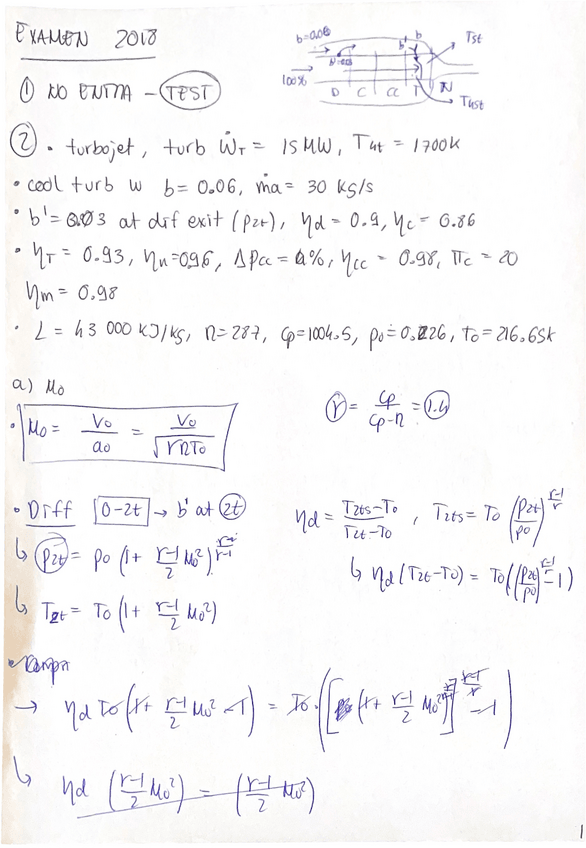 EXAMEN 2018
b=0.06
b' b
Tst
100%
D C CC T N
T4st
① NO ENTRA - TEST
② • turbojet, turb ẆT = 15 MW, T4t = 1700K
• cool turb w b = 0.06, ṁa = 30 kg/s
• b' = 0.03 at dif exit (p2t), ηd = 0.9, ηc = 0.86
• ηT = 0.93, ηn = 0.96, Δpcc = 4%, ηcc = 0.98, πc = 20
ηm = 0.98
• L = 43 000 kJ/kg, R = 287, cp = 1004.5, p0 = 0.226, T0 = 216.65K
a) M0
• M0 = V0/a0 = V0/√(γRT0)
γ = cp/(cp-R) = 1.4
• Diff 0-2t → b' at 2t
ηd = (T2ts-T0)/(T2t-T0), T2ts = T0 (p2t/p0)^((γ-1)/γ)
↳ p2t = p0 (1+ (γ-1)/2 M0²)^(γ/(γ-1))
↳ ηd (T2t-T0) = T0((p2t/p0)^((γ-1)/γ) -1)
↳ T2t = T0 (1+ (γ-1)/2 M0²)
→ ηd T0 (1+ (γ-1)/2 M0² -1) = T0 · ([(1+ (γ-1)/2 M0²)^(γ/(γ-1))]^((γ-1)/γ) -1)
↳ ηd ((γ-1)/2 M0²) = ((γ-1)/2 M0²)
1